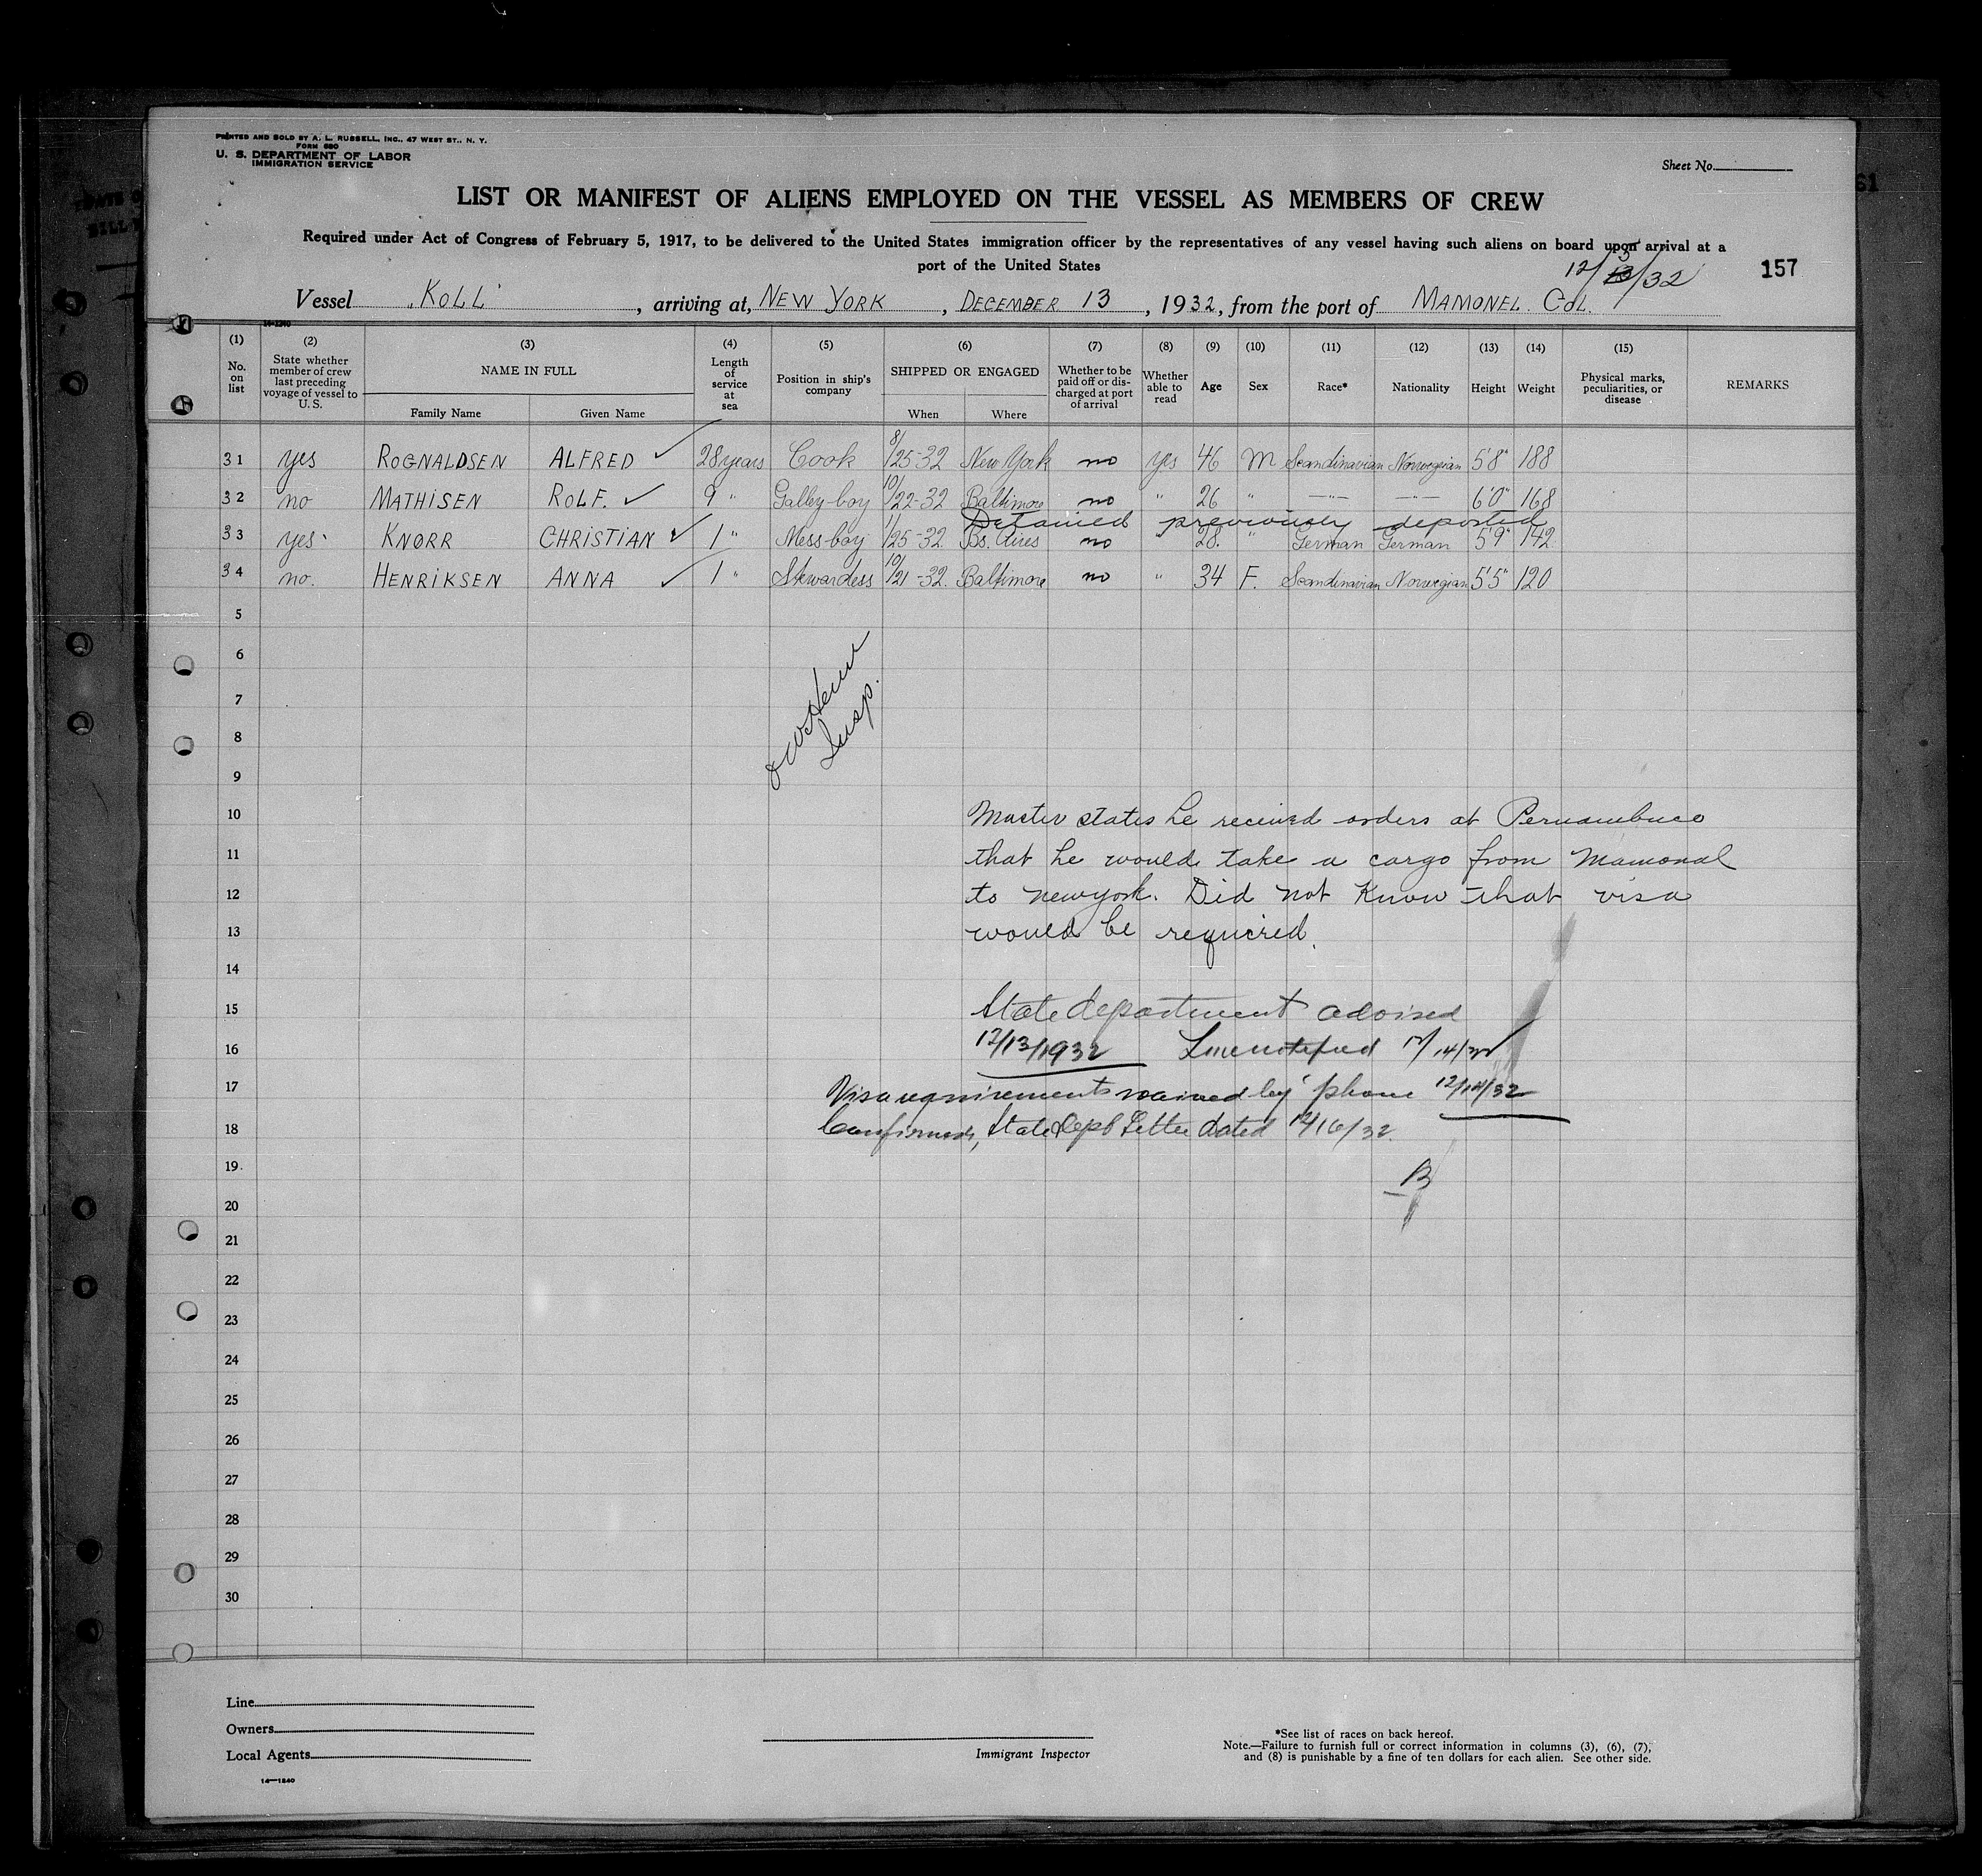 PRINTED AND SOLD BY A. L. RUSSELL, INC., 47 WEST ST., N. Y.
FORM 680
U. S. DEPARTMENT OF LABOR
IMMIGRATION SERVICE
Sheet No.
61
LIST OR MANIFEST OF ALIENS EMPLOYED ON THE VESSEL AS MEMBERS OF CREW
Required under Act of Congress of February 5, 1917, to be delivered to the United States immigration officer by the representatives of any vessel having such aliens on board upon arrival at a
port of the United States
12/3/32
157
Vessel "KOLL", arriving at, NEW YORK, DECEMBER 13, 1932, from the port of MAMONEL. COL.
14-1240
(1) No. on list
(2) State whether member of crew last preceding voyage of vessel to U. S.
(3) NAME IN FULL Family Name Given Name
(4) Length of service at sea
(5) Position in ship's company
(6) SHIPPED OR ENGAGED When Where
(7) Whether to be paid off or discharged at port of arrival
(8) Whether able to read
(9) Age
(10) Sex
(11) Race*
(12) Nationality
(13) Height
(14) Weight
(15) Physical marks, peculiarities, or disease
REMARKS
31 yes ROGNALDSEN ALFRED ✓ 28 years Cook 8/25-32 New York no yes 46 M Scandinavian Norwegian 5'8" 188
32 no MATHISEN ROLF. ✓ 9 " Galley-boy 10/22-32 Baltimore no " 26 " —"— —"— 6'0" 168
Detained previously deported
33 yes KNØRR CHRISTIAN ✓ 1 " Mess-boy 1/25-32 Bs. Aires no " 28. " German German 5'9" 142
34 no. HENRIKSEN ANNA ✓ 1 " Stewardess 10/21-32. Baltimore no " 34 F. Scandinavian Norwegian 5'5" 120
5
6
7
8
Insp.
9
10 Master states he received orders at Pernambuco
11 that he would take a cargo from Mamonal
12 to New York. Did not know that visa
13 would be required.
14
15 State department advised
16 12/13/1932 Line notified 12/14/32
17 Visa requirements waived by 'phone 12/14/32
18 Confirmed, State Dept Letter dated 12/16/32.
19
B
20
21
22
23
24
25
26
27
28
29
30
Line
Owners
Local Agents
14—1240
Immigrant Inspector
*See list of races on back hereof.
Note.—Failure to furnish full or correct information in columns (3), (6), (7),
and (8) is punishable by a fine of ten dollars for each alien. See other side.